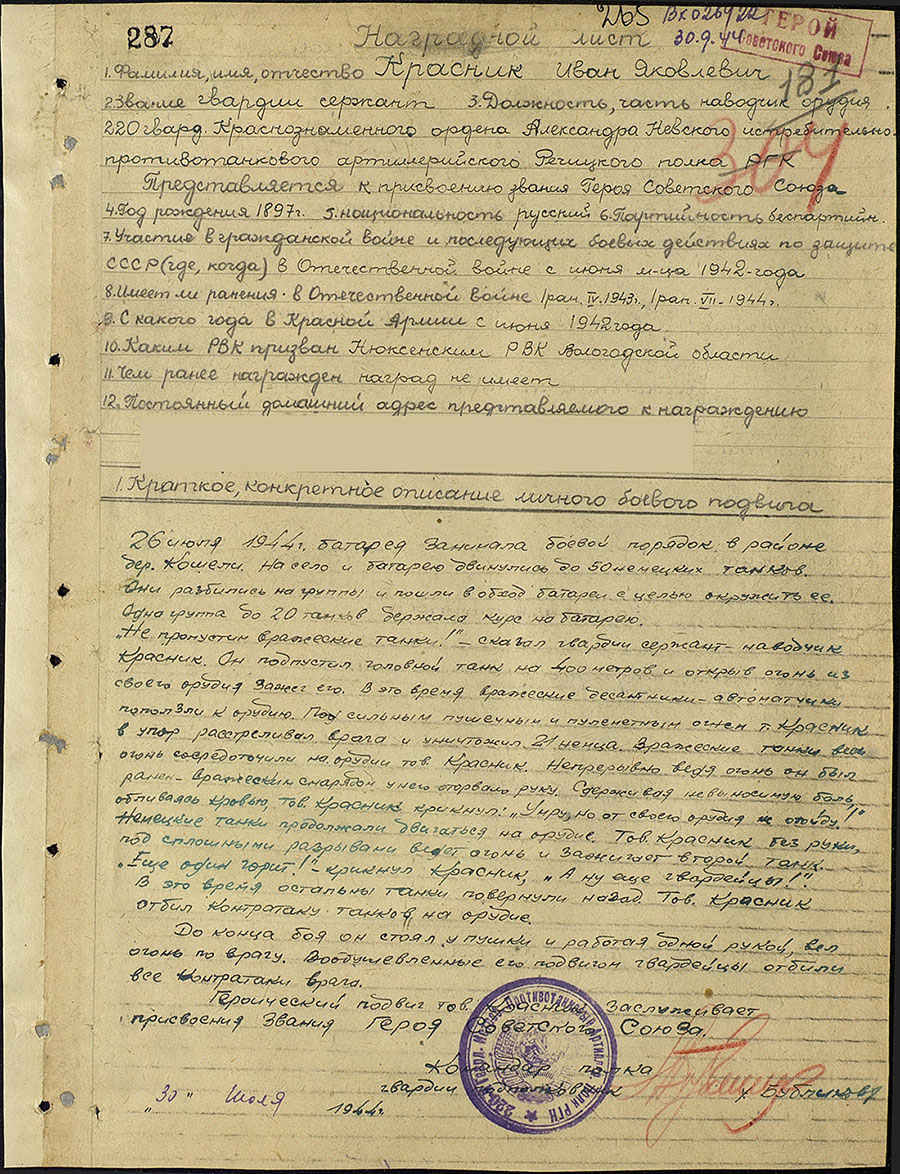 287
265
Вх026922
30.9.44
ГЕРОЙ
Советского Союза
181
304
Наградной лист
1.Фамилия, имя, отчество Красник Иван Яковлевич
2.Звание гвардии сержант 3.Должность, часть наводчик орудия
220 гвард. Краснознаменного ордена Александра Невского истребительно-
противотанкового артиллерийского Речицкого полка РГК
Представляется к присвоению звания Героя Советского Союза
4.Год рождения 1897г. 5.национальность русский 6.Партийность беспартийн.
7.Участие в гражданской войне и последующих боевых действиях по защите
СССР(где, когда) в Отечественной войне с июня м-ца 1942-года
8.Имеет ли ранения в Отечественной войне 1ран. IV.1943г., 1ран. VII-1944г.
9.С какого года в Красной Армии с июня 1942года
10.Каким РВК призван Нюксенским РВК Вологодской области
11.Чем ранее награжден наград не имеет
12.Постоянный домашний адрес представляемого к награждению
1.Краткое, конкретное описание личного боевого подвига
26 июля 1944г. батарея занимала боевой порядок в районе
дер. Кошели. На село и батарею двинулись до 50 немецких танков.
Они разбились на группы и пошли в обход батареи с целью окружить ее.
Одна группа до 20 танков держала курс на батарею.
„Не пропустим вражеские танки!" – сказал гвардии сержант – наводчик
Красник. Он подпустил головной танк на 400 метров и открыв огонь из
своего орудия зажег его. В это время вражеские десантники – автоматчики
поползли к орудию. Под сильным пушечным и пулеметным огнем т. Красник
в упор расстреливал врага и уничтожил 21 немца. Вражеские танки весь
огонь сосредоточили на орудии тов. Красник. Непрерывно ведя огонь он был
ранен – вражеским снарядом у него оторвало руку. Сдерживая невыносимую боль,
обливаясь кровью, тов. Красник крикнул: „Умру, но от своего орудия не отойду!"
Немецкие танки продолжали двигаться на орудие. Тов. Красник без руки,
под сплошными разрывами ведет огонь и зажигает второй танк.
„Еще один горит!" – крикнул Красник, „А ну еще гвардейцы!".
В это время остальны танки повернули назад. Тов. Красник
отбил контратаку танков на орудие.
До конца боя он стоял у пушки и работая одной рукой, вел
огонь по врагу. Воодушевленные его подвигом гвардейцы отбили
все контратаки врага.
Героический подвиг тов. Красник заслуживает
присвоения Звания Героя Советского Союза.
Командир полка
гвардии подполковник / Бубликов/
„30" Июля 1944г.